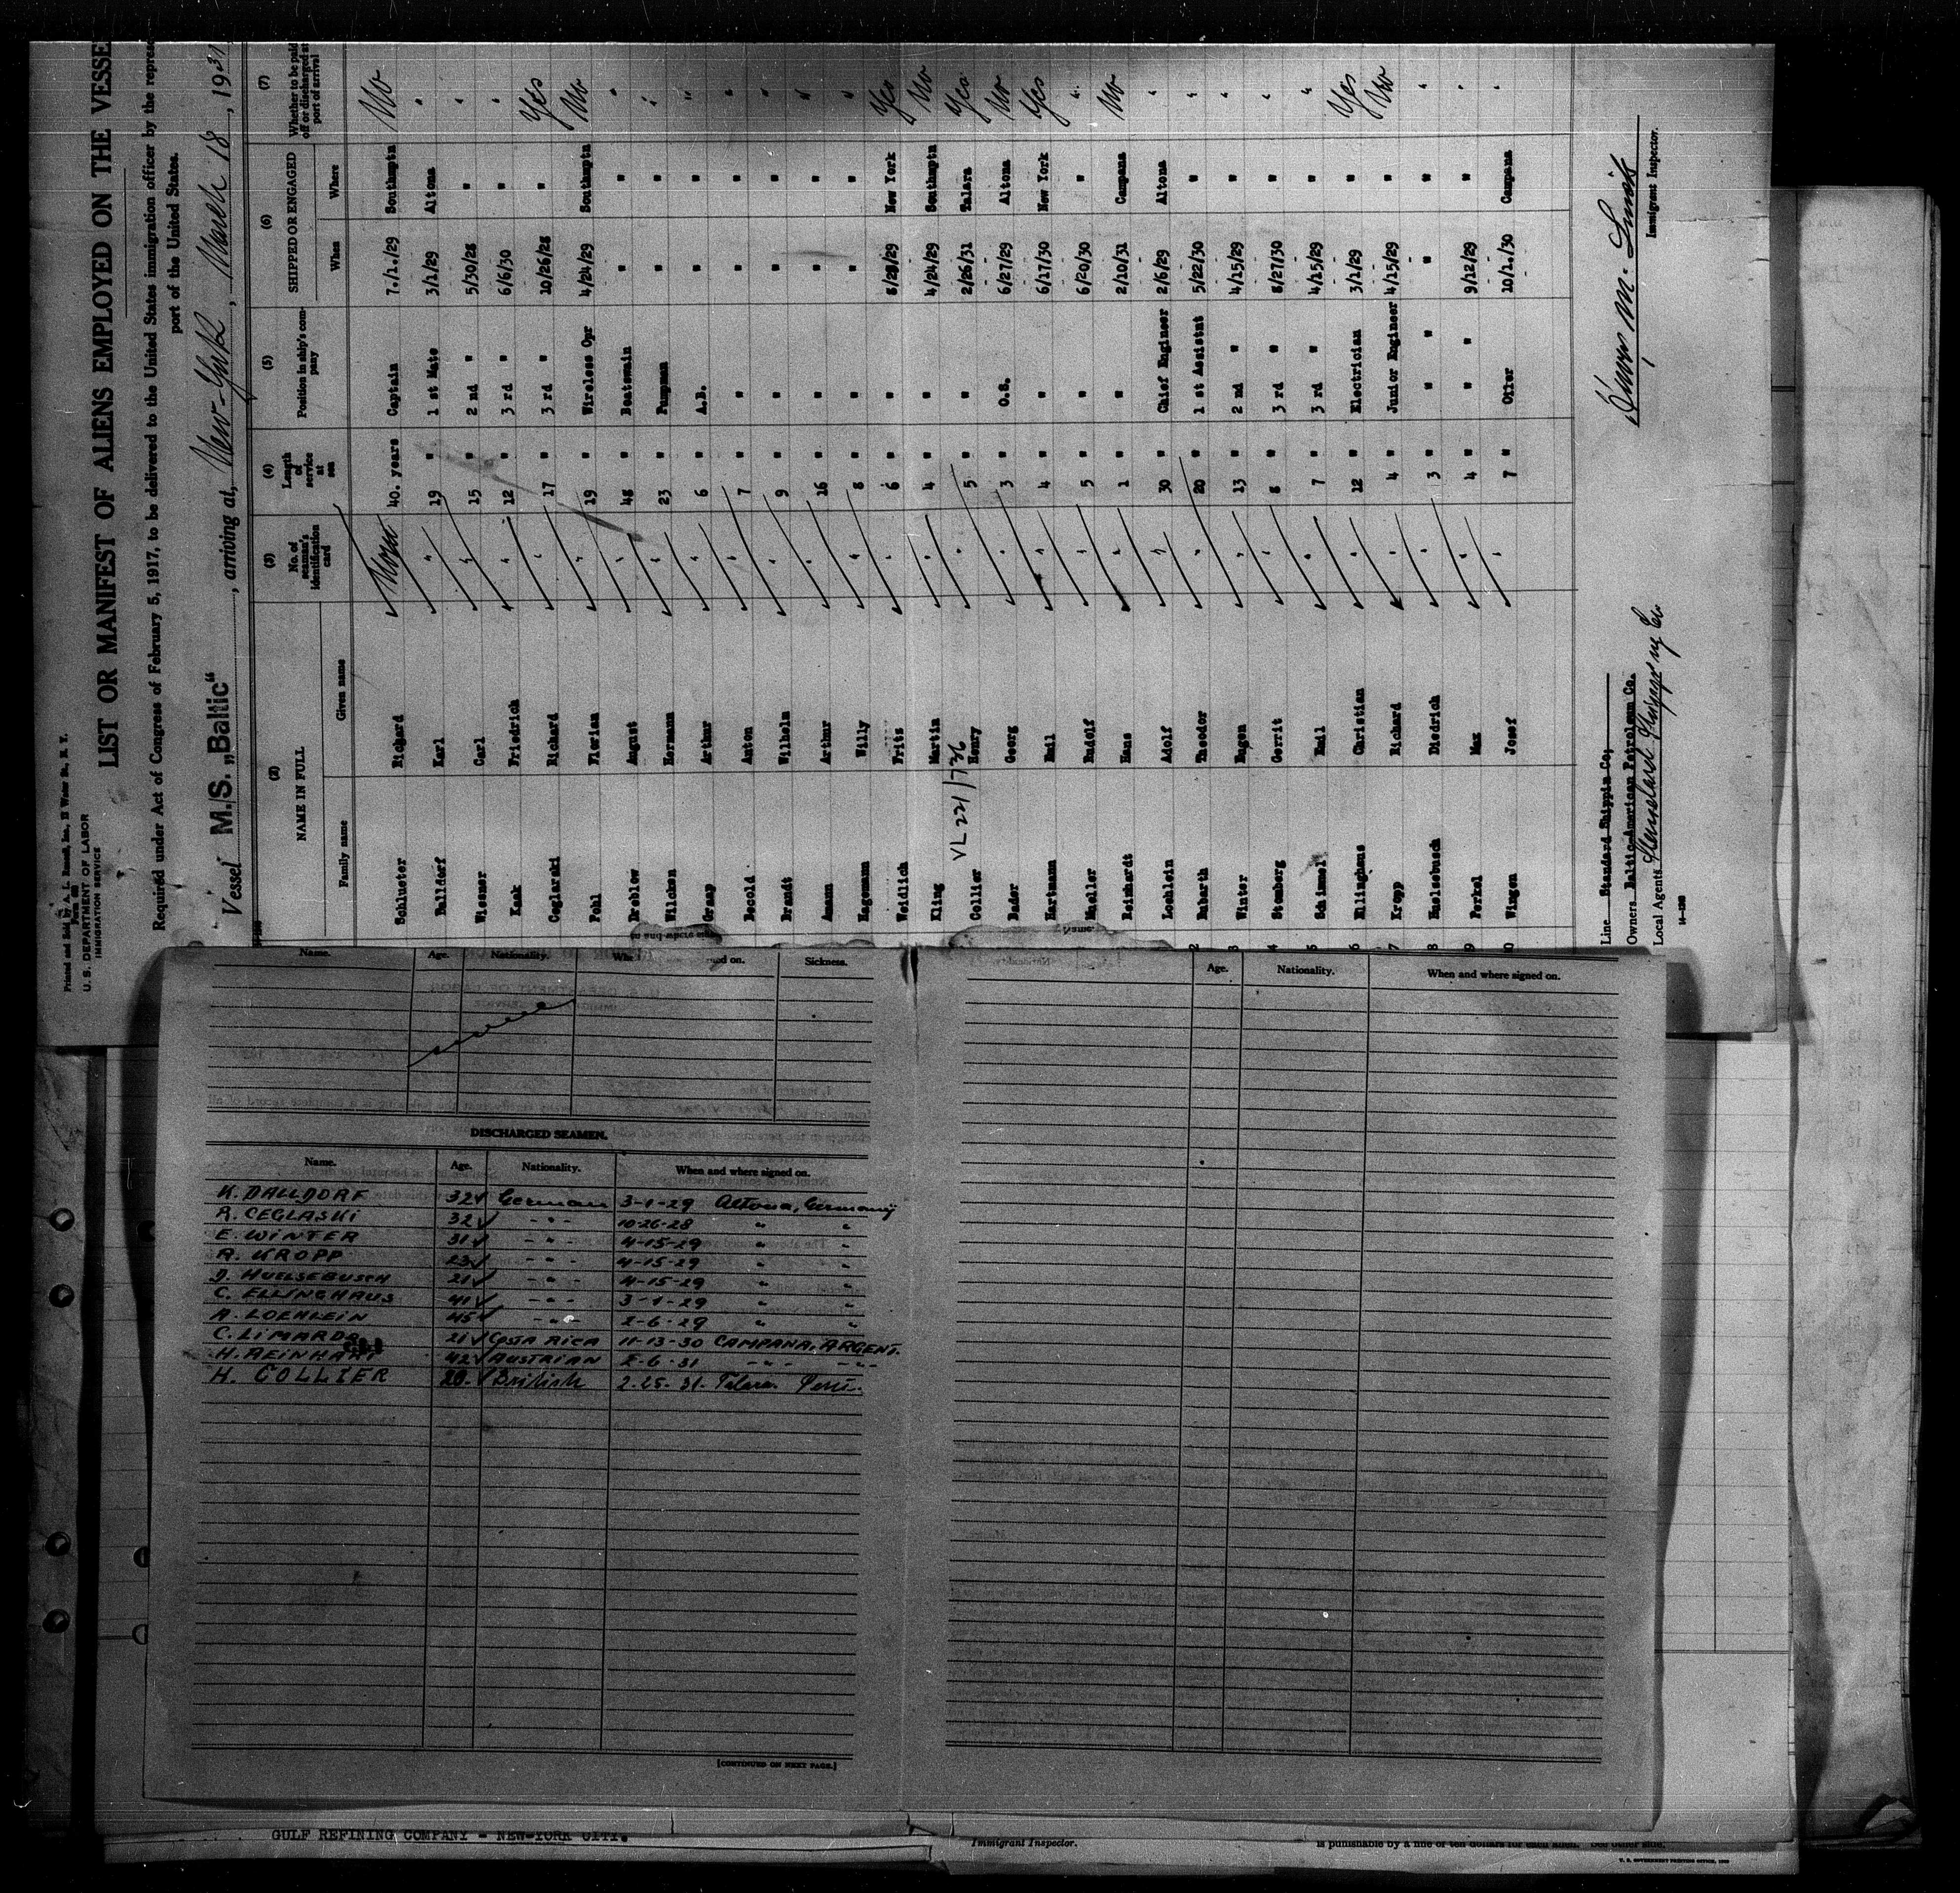 Printed and Sold by A. L. Russell, Inc., Water St., N. Y.
U. S. DEPARTMENT OF LABOR
IMMIGRATION SERVICE
LIST OR MANIFEST OF ALIENS EMPLOYED ON THE VESSE
Required under Act of Congress of February 5, 1917, to be delivered to the United States immigration officer by the represe
port of the United States.
Vessel M./S. „Baltic“, arriving at, New-York, March 18, 1931
(2) (3) (4) (5) (6) (7)
NAME IN FULL No. of seaman's identification card Length of service at sea Position in ship's company SHIPPED OR ENGAGED Whether to be paid off or discharged at port of arrival
Family name Given name When Where
Schlueter Richard None 40. years Captain 7./1./29 Southmptn No
Dalldorf Karl " 19 " 1 st Mate 3/1/29 Altona "
Wiesner Carl " 15 " 2 nd " 5/30/28 " "
Kaak Friedrich " 12 " 3 rd " 6/6/30 " "
Ceglarski Richard " 17 " 3 rd " 10/26/28 " Yes
Pohl Florian " 19 " Wireless Opr 4/24/29 Southmptn No
Drehlow August " 48 " Boatswain " " "
Wilcken Hermann " 23 " Pumpman " " "
Graap Arthur " 6 " A.B. " " "
Becold Anton " 7 " " " " "
Brandt Wilhelm " 9 " " " " "
Amann Arthur " 16 " " " " "
Hagemann Willy " 8 " " " " "
Weidlich Fritz " 6 " " 8/28/29 New York Yes
Kling Martin " 4 " " 4/24/29 Southmptn No
VL 221/736
Collier Henry " 5 " " 2/26/31 Talara Yes
Bader Georg " 3 " O.S. 6/27/29 Altona No
Hartmann Emil " 4 " " 6/17/30 New York Yes
Mueller Rudolf " 5 " " 6/20/30 " "
Reinhardt Hans " 1 " " 2/10/31 Campana No
Loehlein Adolf " 30 " Chief Engineer 2/6/29 Altona "
2 Rubarth Theodor " 20 " 1 st Assistnt 5/22/30 " "
3 Winter Eugen " 13 " 2 nd " 4/15/29 " "
4 Stenberg Gerrit " 8 " 3 rd " 8/27/30 " "
5 Schimmel Emil " 7 " 3 rd " 4/15/29 " "
6 Ellinghaus Christian " 12 " Electrician 3/1/29 " Yes
7 Kropp Richard " 4 " Junior Engineer 4/15/29 " No
8 Huelsebusch Diedrich " 3 " " " " "
9 Perkel Max " 4 " " 9/12/29 " "
0 Wingen Josef " 7 " Oiler 10/1./30 Campana "
Line Standard Shippin Co;
Owners Baltic-American Petroleum Co.
Local Agents
Immigrant Inspector.
14—1240
Name. Age. Nationality. When and where signed on. Sickness.
DISCHARGED SEAMEN.
Name. Age. Nationality. When and where signed on.
K. DALLDORF 32 German 3-1-29 Altona, Germany
R. CEGLASKI 32 -"- 10-26-28 " "
E. WINTER 31 -"- 4-15-29 " "
R. KROPP 23 -"- 4-15-29 " "
D. HUELSEBUSCH 21 -"- 4-15-29 " "
C. ELLINGHAUS 41 -"- 3-1-29 " "
A. LOEHLEIN 45 -"- 2-6-29 " "
C. LIMARDO 21 COSTA RICA 11-13-30 CAMPANA, ARGENT.
H. REINHART 42 AUSTRIAN 2-6-31 -"- -"-
H. COLLIER 20. British 2.25.31. Talara Peru.
[CONTINUED ON NEXT PAGE.]
Age. Nationality. When and where signed on.
GULF REFINING COMPANY - NEW-YORK CITY.
Immigrant Inspector.
is punishable by a fine of ten dollars for each alien. See other side.
U. S. GOVERNMENT PRINTING OFFICE